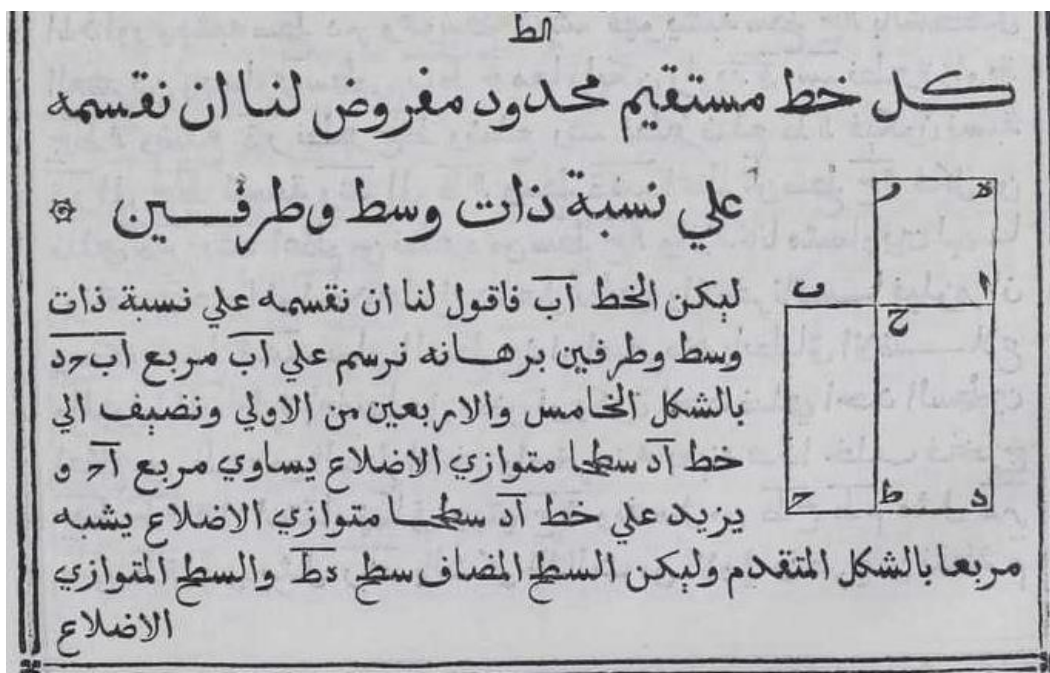 الط
كل خط مستقيم محدود مفروض لنا ان نقسمه
علي نسبة ذات وسط وطرفين
ليكن الخط اب فاقول لنا ان نقسمه علي نسبة ذات
وسط وطرفين برهانه نرسم علي اب مربع اب حد
بالشكل الخامس والاربعين من الاولي ونضيف الي
خط اد سطحا متوازي الاضلاع يساوي مربع اح و
يزيد علي خط اد سطحا متوازي الاضلاع يشبه
مربعا بالشكل المتقدم وليكن السطح المضاف سطح دط والسطح المتوازي
الاضلاع
ه
ر
ا
ب
ح
د
ط
ح